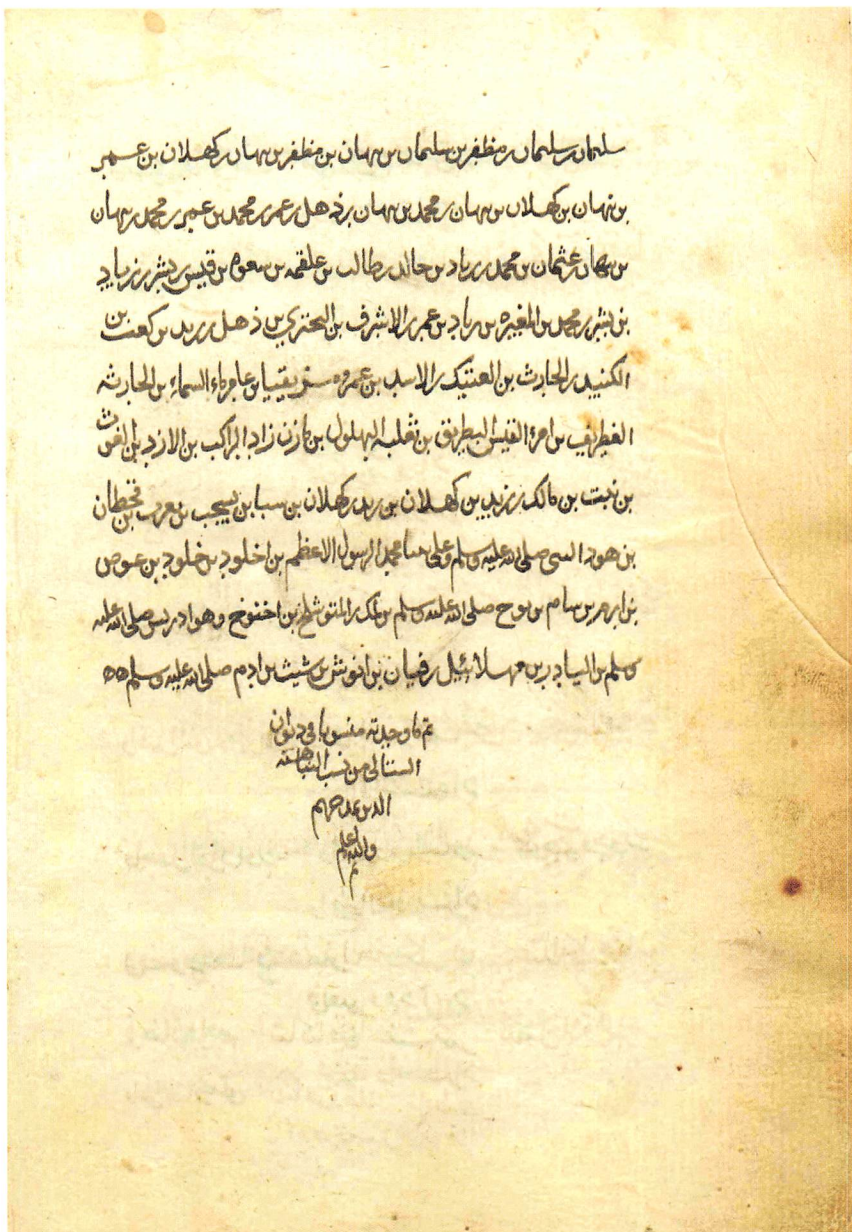 سليمان بن سليمان بن مظفر بن سليمان بن نبهان بن مظفر بن نبهان بن كهلان بن عمر
بن نبهان بن كهلان بن نبهان بن محمد بن نبهان بن ذهل بن عمر بن محمد بن عمر بن محمد بن نبهان
بن نبهان بن عثمان بن محمد بن زياد بن خالد بن طالب بن علقمه بن معوه بن قيس بن بشر بن زياد
بن بشير بن محمد بن المغيره بن زياد بن عمر بن الاشرف بن البختري بن ذهل بن زيد بن كعب بن
الكنيد بن الحارث بن العتيك بن الاسد بن عمرو مزيقيا بن عامر ماء السماء بن الحارثه
الغطريف بن امرء القيس البطريق بن ثعلبه البهلول بن مازن زاد الراكب بن الازد بن الغوث
بن نبت بن مالك بن زيد بن كهلان بن زيد بن كهلان بن سبا بن يسجب بن يعرب بن قحطان
بن هود النبي صلى الله عليه وسلم وعلى نبينا محمد الرسول الاعظم بن اخلود بن خلود بن عوص
بن ارم بن سام بن نوح صلى الله عليه وسلم بن لمك بن المتوشلخ بن اخنوخ وهو ادريس صلى الله عليه
وسلم بن اليادر بن مهلائيل بن قيان بن انوش بن شيث بن ادم صلى الله عليه وسلم
تم ما وجدته منسوبا في ديوان
الستالي من نسب النباهنة
الذين مدحهم
والله اعلم
تم